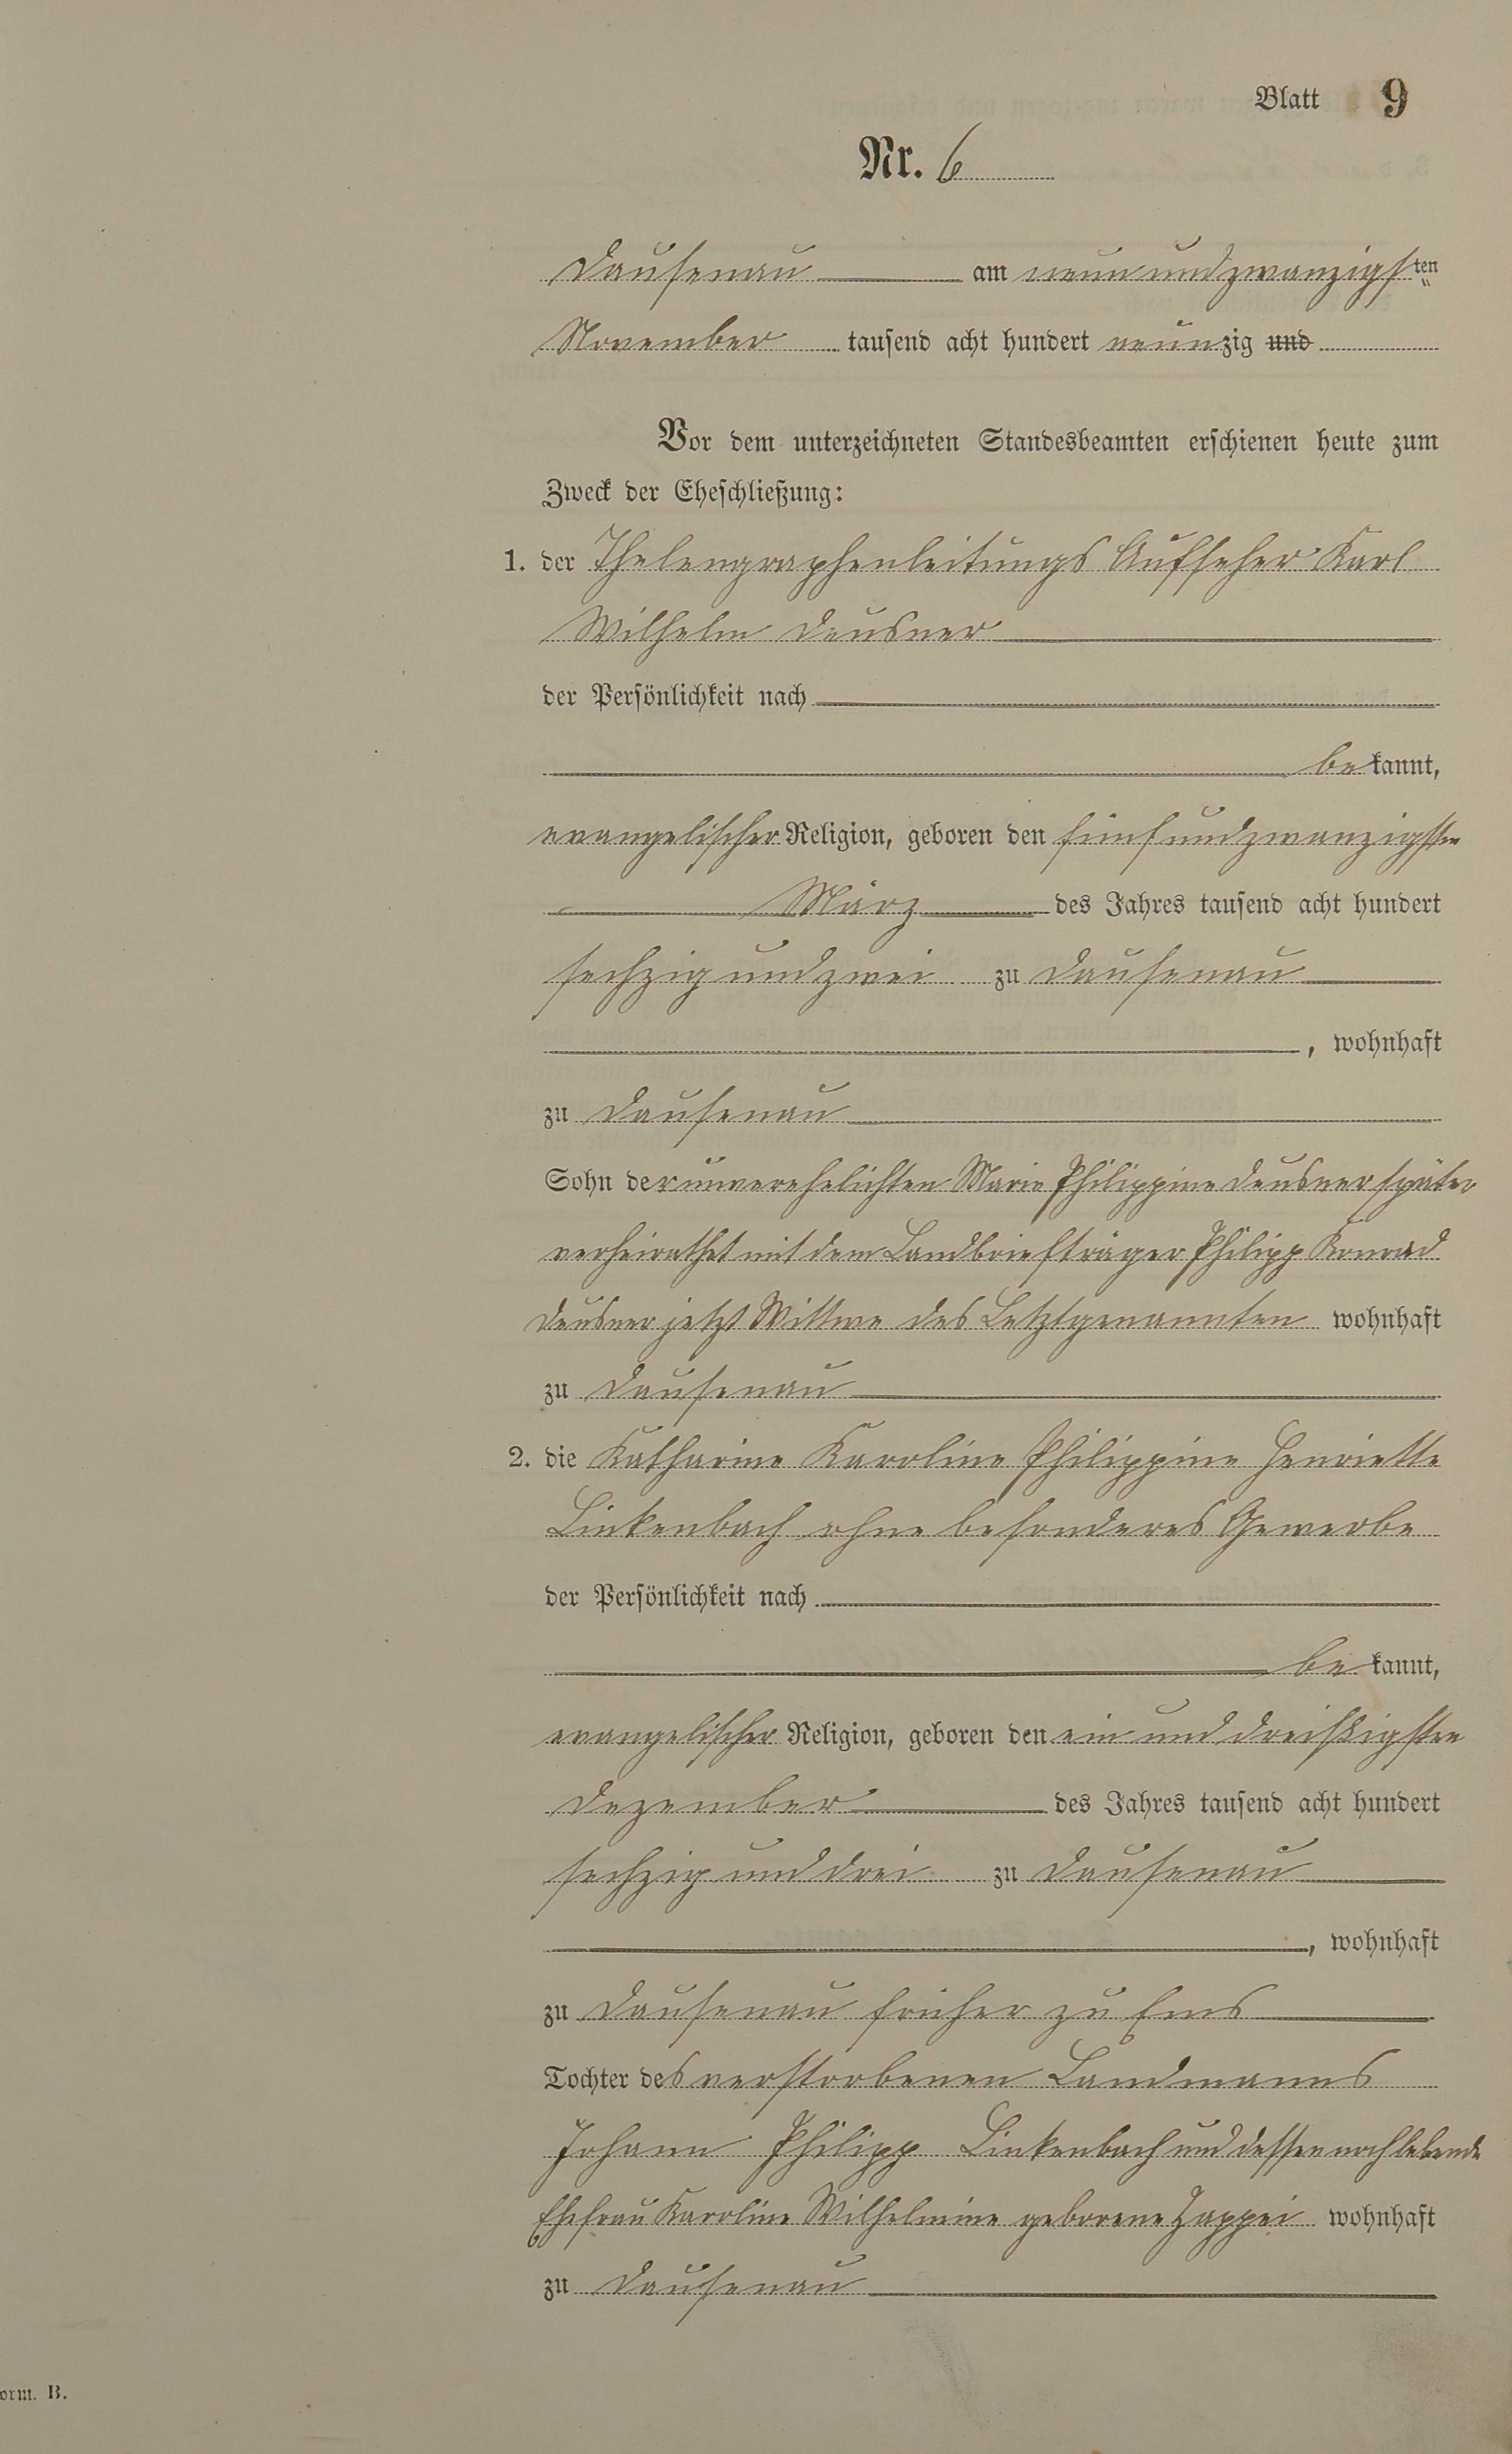 Blatt 9
Nr. 6
Dausenau am neun und zwanzigsten
November tausend acht hundert neunzig und
Vor dem unterzeichneten Standesbeamten erschienen heute zum
Zweck der Eheschließung:
1. der Thelengraphenleitungs Aufseher Karl
Wilhelm Deusner
der Persönlichkeit nach
be kannt,
evangelischer Religion, geboren den fünf und zwanzigsten
März des Jahres tausend acht hundert
sechzig und zwei zu Dausenau
, wohnhaft
zu Dausenau
Sohn der unverehelichten Marie Philippine Deusner später
verheirathet mit dem Landbriefträger Philipp Konrad
Deusner jetzt Wittwe des Letztgenannten wohnhaft
zu Dausenau
2. die Katharine Karoline Philippine Henriette
Linkenbach ohne besonderes Gewerbe
der Persönlichkeit nach
be kannt,
evangelischer Religion, geboren den ein und dreißigsten
Dezember des Jahres tausend acht hundert
sechzig und drei zu Dausenau
, wohnhaft
zu Dausenau früher zu Ems
Tochter des verstorbenen Landmanns
Johann Philipp Linkenbach und dessen noch lebende
Ehefrau Karoline Wilhelmine geborene Zappei wohnhaft
zu Dausenau
orm. B.